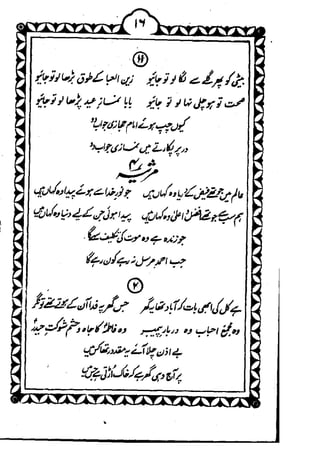 ۱۶
بیٹی کو پھر گلے سے لگا لو تو جائیو زین العبا کے طوق بڑھا لو تو جائیو
صحت تو ہو چلی نہا لو تو جائیو بابا نماز عید پڑھا لو تو جائیو
کیوں چپ ہوئے امام حجازی جواب دو
در پر پکارتے ہیں نمازی جواب دو
مرثیہ
عالم میں جو تھے فیض کے دریا وہ کہاں ہیں جو نور خدا سے ہوئے پیدا وہ کہاں ہیں
ہم سب سے جو تھے افضل و اعلیٰ وہ کہاں ہیں پیدا ہوئی جن کے لیے دنیا وہ کہاں ہیں
جو زندہ ہے وہ موت کی تکلیف سہے گا
جب احمد مرسل نہ رہے کون رہے گا
۲
ہے کل کی ابھی بات کہ آباد تھا یہ گھر جس گھر پہ فدا آن کے ہوتے تھے تونگر
وہ مجمع احباب وہ دربار پیمبر وہ فاطمہ کا جاہ و حشم شوکت حیدر
بے اذن چلا آئے یہ مقدور تھا کس میں
پر آج وہی گھر ہے کہ خاک اڑتی ہے جس میں